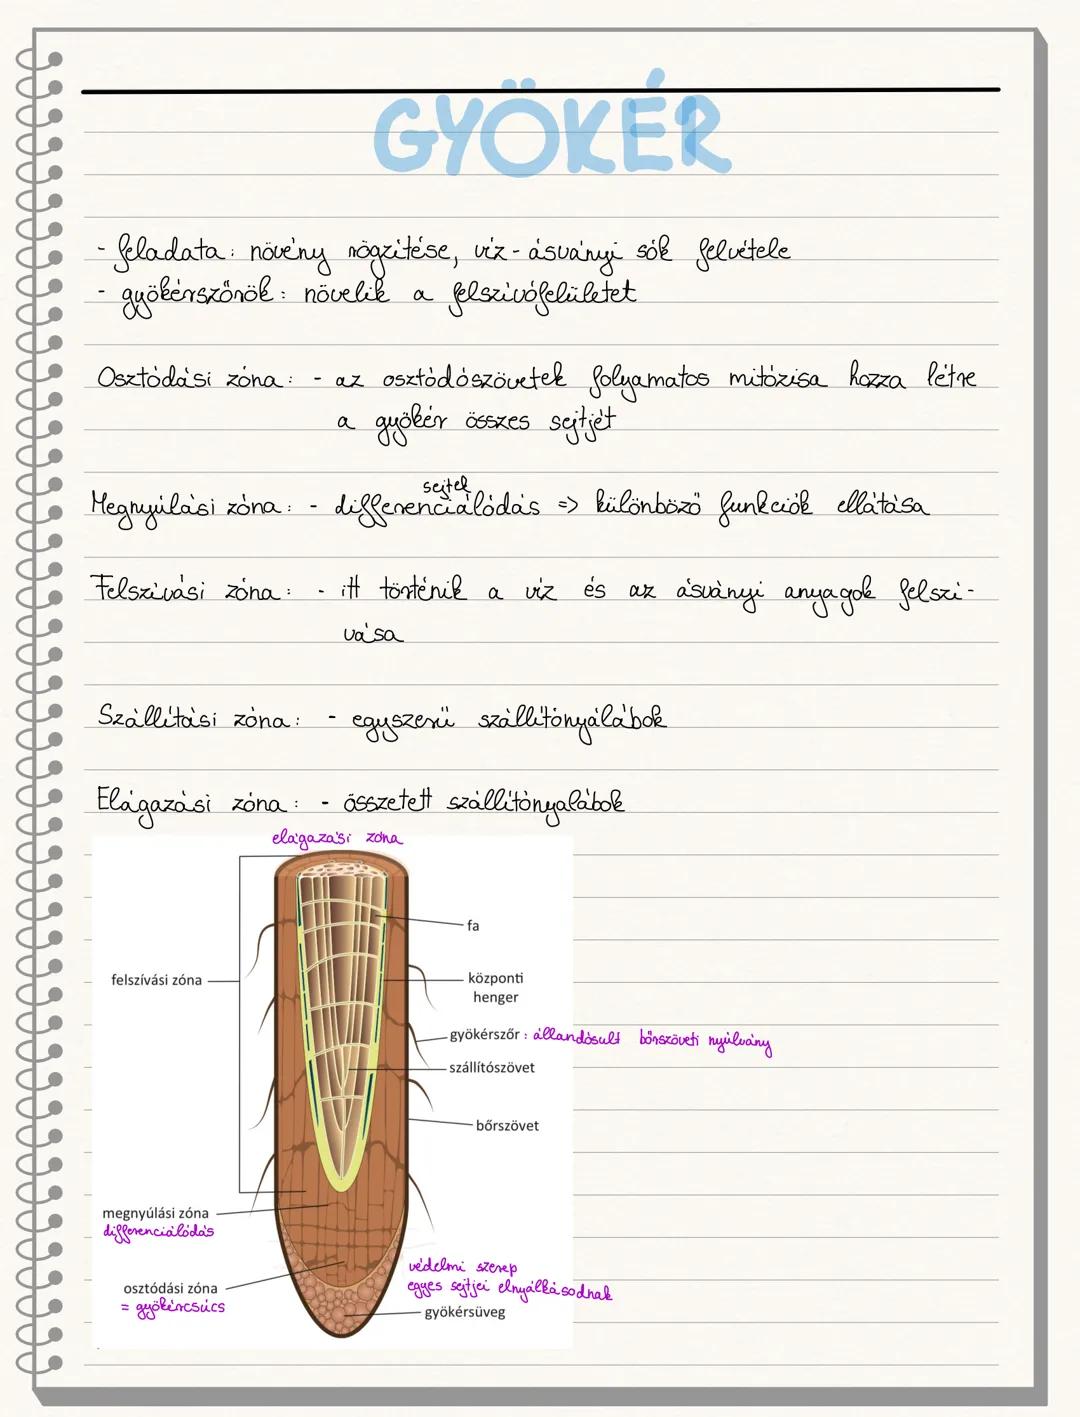 GYÖKÉR
- feladata: növény rögzítése, víz-ásványi sók felvétele
- gyökérszőrök: növelik a felszívófelületet
Osztódási zóna: - az osztódószövetek folyamatos mitózisa hozza létre
a gyökér összes sejtjét
sejtek
Megnyúlási zóna: - differenciálódás => különböző funkciók ellátása
Felszívási zóna: - itt történik a víz és az ásványi anyagok felszí-
vása
Szállítási zóna: - egyszerű szállítónyálábok
Elágazási zóna: - összetett szállítónyalábok
elágazási zóna
fa
felszívási zóna
központi
henger
gyökérszőr: állandósult bőrszöveti nyúlvány
szállítószövet
bőrszövet
megnyúlási zóna
differenciálódás
védelmi szerep
egyes sejtjei elnyálkásodnak
osztódási zóna
= gyökércsúcs
gyökérsüveg